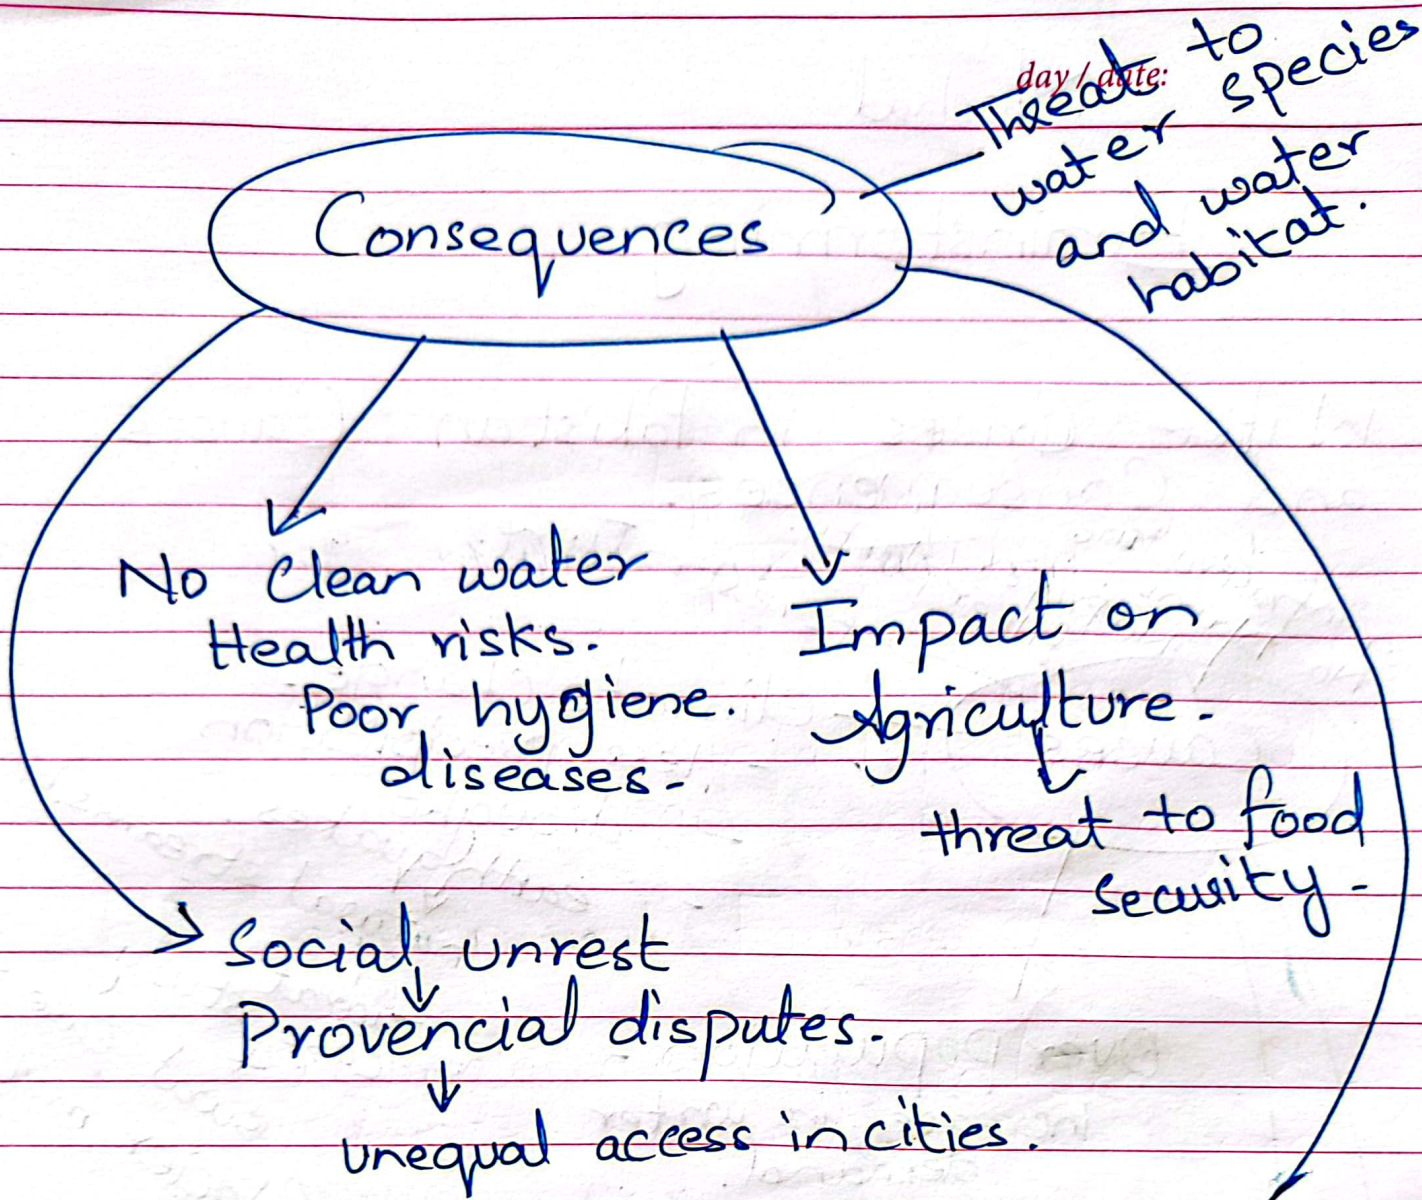 day / date:
Threat to
water species
and water
habitat.
Consequences
No Clean water
Health risks.
Poor hygiene.
diseases.
Impact on
Agriculture.
threat to food
security.
Social unrest
Provencial disputes.
unequal access in cities.